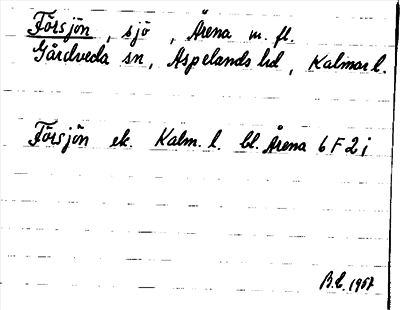 Försjön, sjö, Årena m. fl.
Gårdveda sn, Aspelands hd, Kalmar l.
Försjön ek. Kalm. l. bl. Årena 6 F 2 i
B.E. 1967